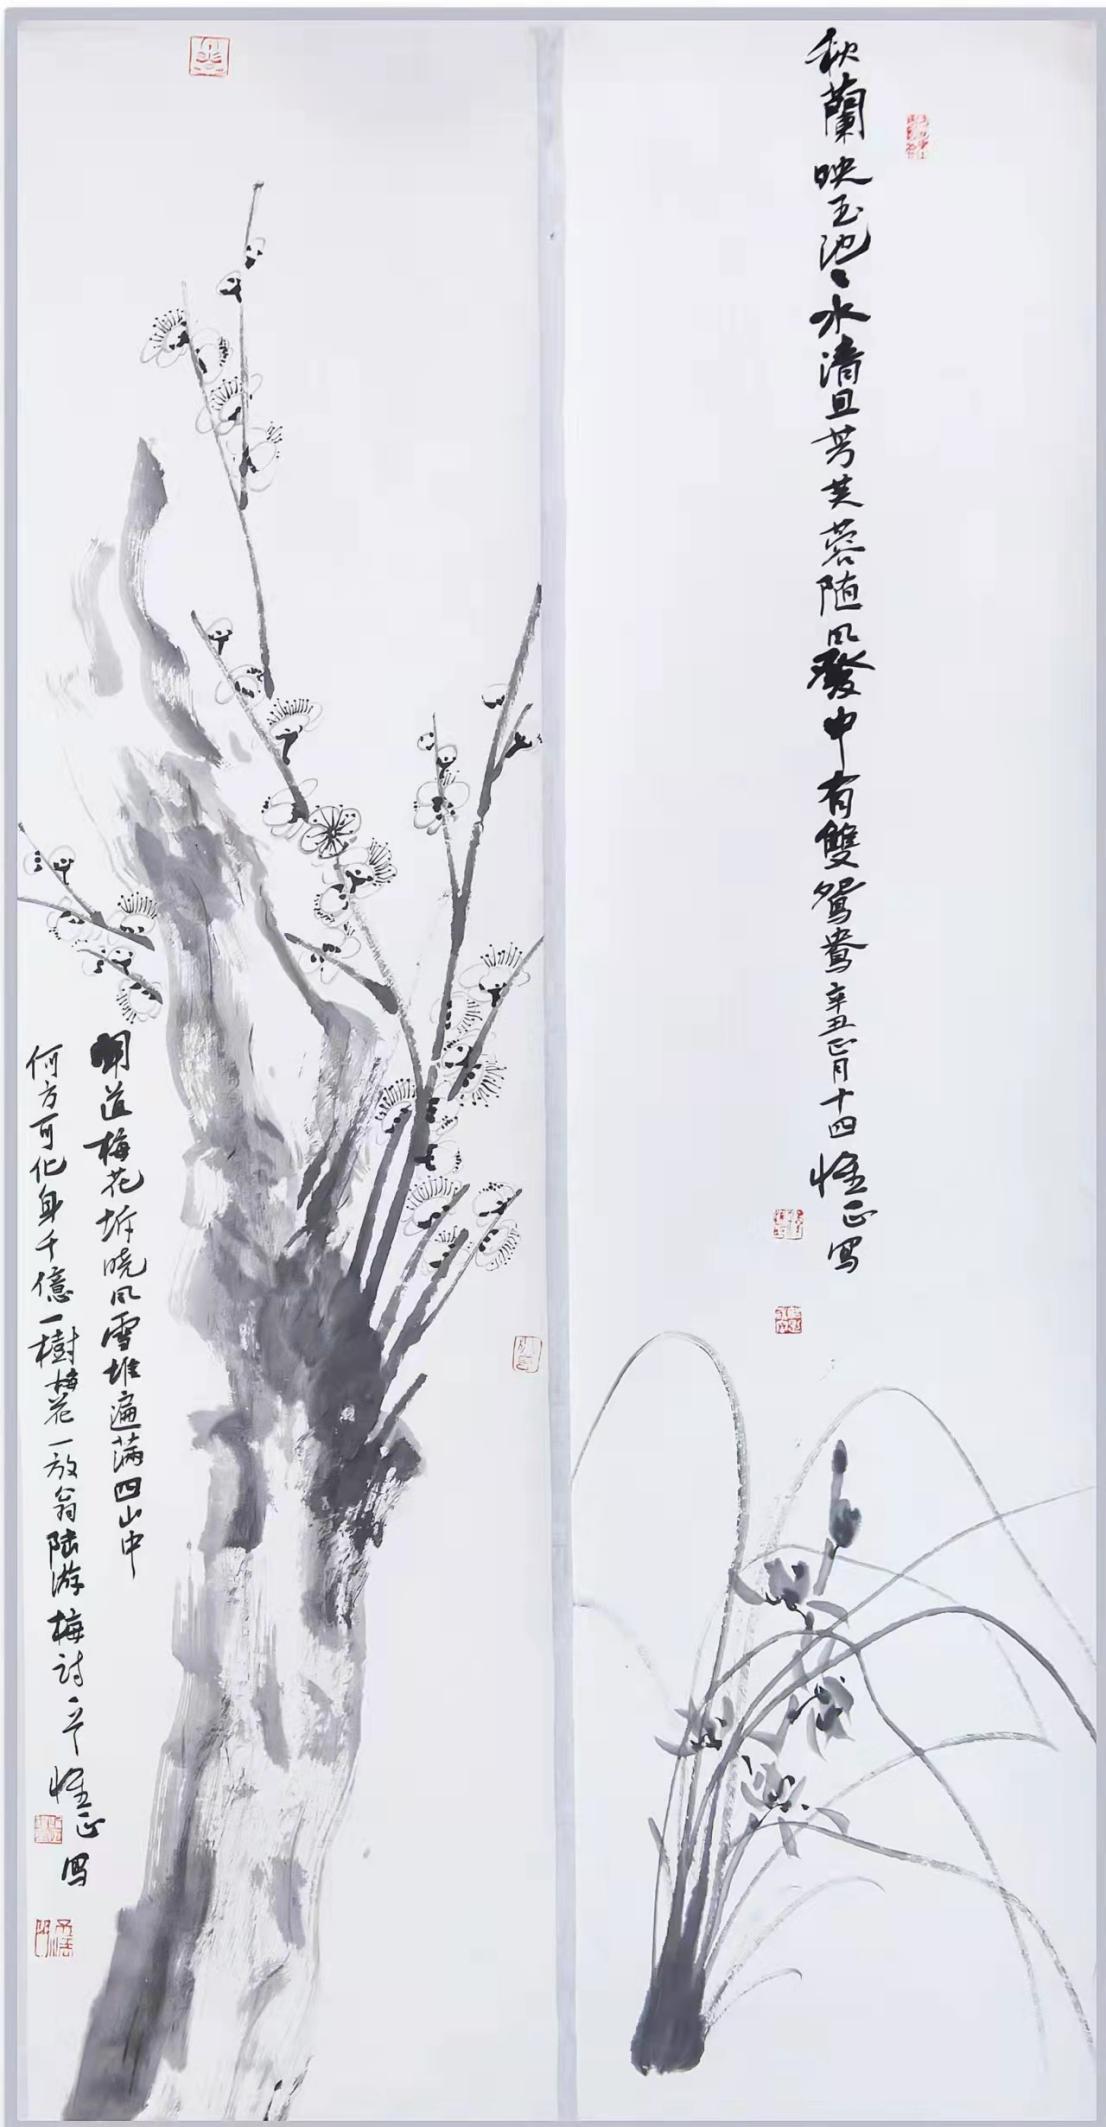 秋蘭映玉池々水清且芳芙蓉随風發中有雙鴛鴦辛丑正月十四正写
聞道梅花坼晓風雪堆遍满四山中
何方可化身千億一樹梅花一放翁陆游梅詩一首正写